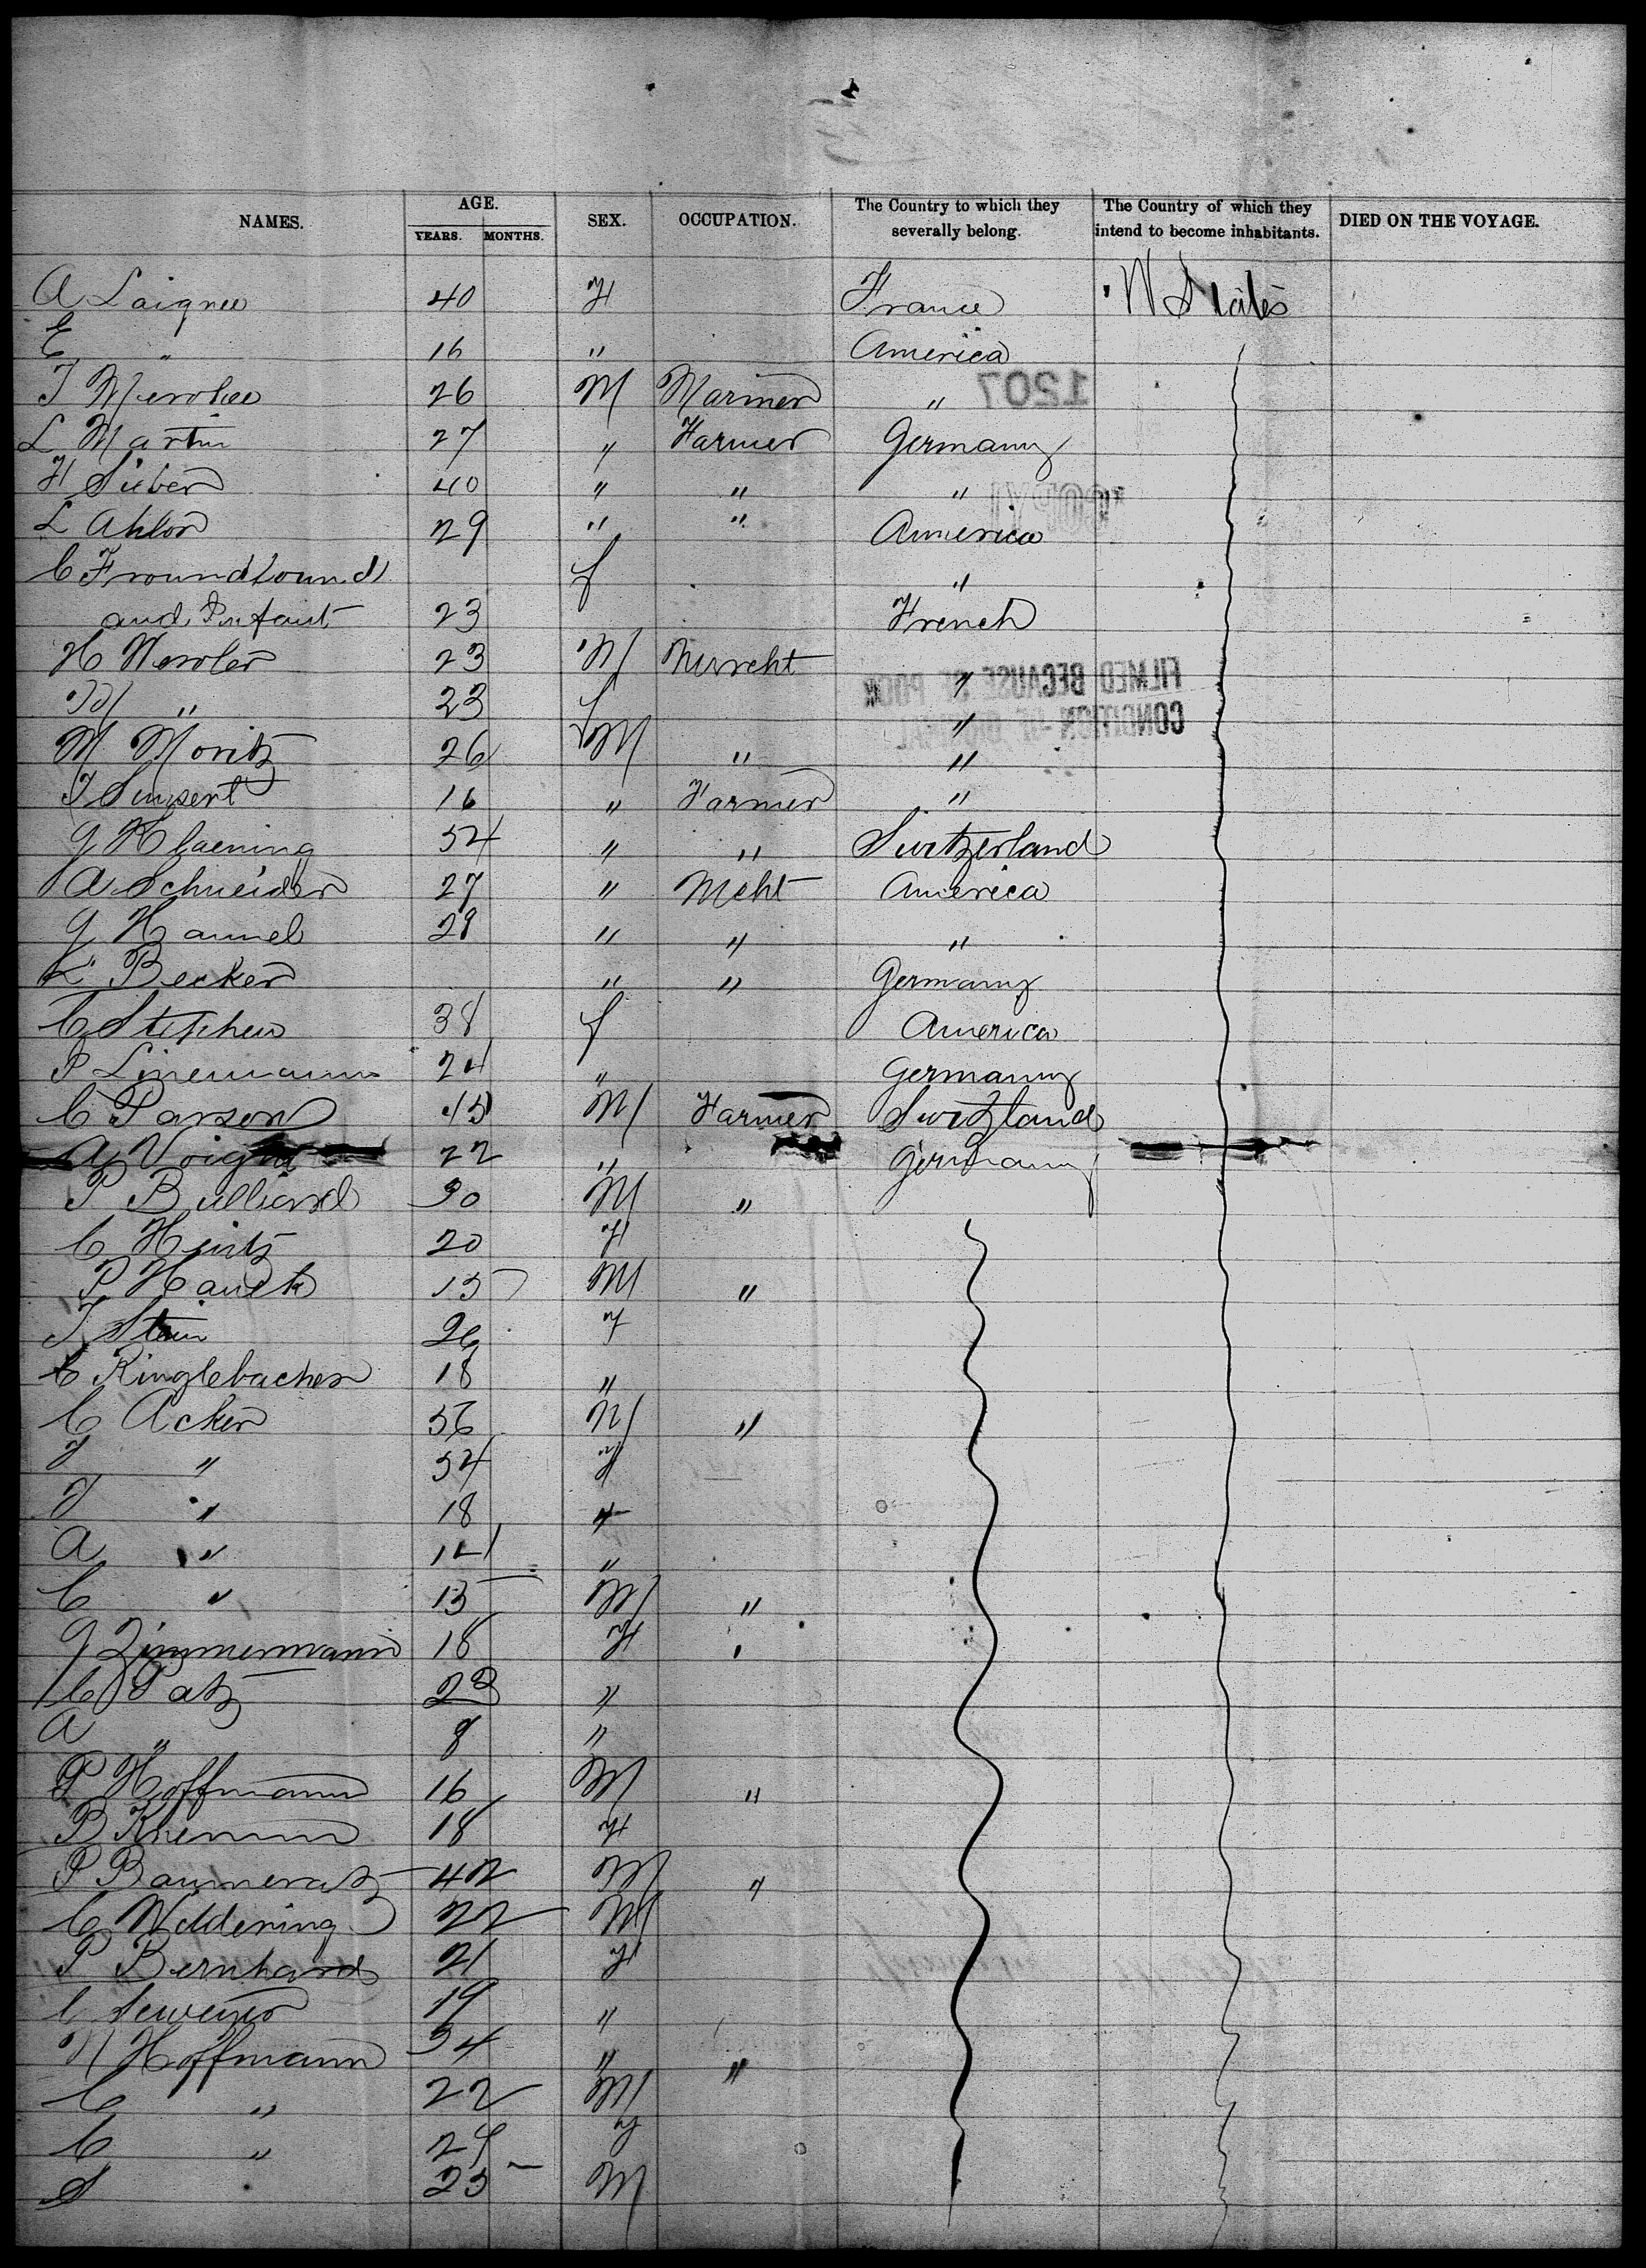 NAMES. AGE. SEX. OCCUPATION. The Country to which they severally belong. The Country of which they intend to become inhabitants. DIED ON THE VOYAGE.
YEARS. MONTHS.
A Laignee 40 F France States
E " 16 " America
J 26 M Mariner "
L Martin 27 " Farmer Germany
H Sieber 40 " " "
L Ahlor 29 " " America
C Froundtound f "
and Infant 23 French
H Wexler 23 M "
" 23 f "
M Moritz 26 M " "
J 16 " Farmer "
G 54 " " Switzerland
A Schneider 27 " Mcht America
G Hannel 29 " " "
K Becker " " Germany
C Stephen 38 f America
P Linemann 24 " Germany
C Parson 45 M Farmer Switzland
A Voignt 22 " Germany
P Bulliard 30 M "
C Hintz 20 F
P Hauck 15 M "
J Stein 26 f
C Ringlebacher 18 "
C Acker 56 M "
J " 54 F
J " 18 "
A " 14 "
C " 15 M "
G Zimmermann 18 F "
C Patz 23 "
A " 8 "
P Hoffmann 16 M "
B 18 F
P Baumeratz 42 M "
C Weldering 22 M
P Bernhard 21 F
C 19 "
N Hoffmann 54 " "
C " 22 M
C " 29 F
S 25 M
1207
COPY
FILMED BECAUSE OF POOR
CONDITION OF ORIGINAL